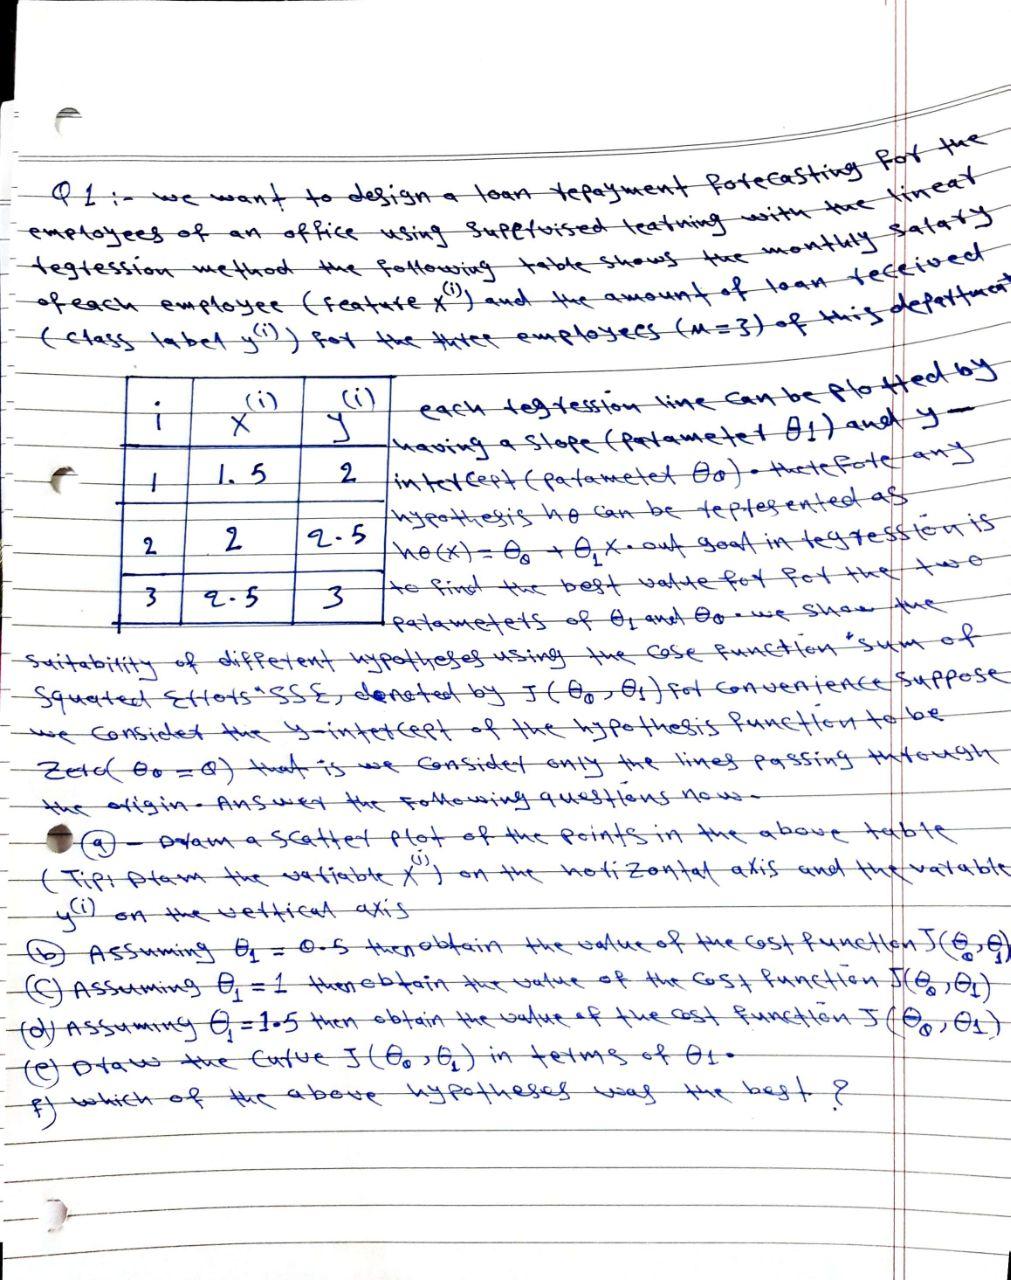 Q1:- we want to design a loan repayment Forecasting For the
employees of an office using Supervised learning with the linear
regression method the following table shows the monthly salary
of each employee (feature x^(i)) and the amount of loan received
(class label y^(i)) for the three employees (M=3) of this department
i x^(i) y^(i)
1 1.5 2
2 2 2.5
3 2.5 3
each regression line can be plotted by
having a slope (parameter θ1) and y-
intercept (parameter θ0). therefore any
hypothesis hθ can be represented as
hθ(x) = θ0 + θ1 x. our goal in regression is
to find the best value for for the two
parameters of θ1 and θ0. we show the
suitability of different hypotheses using the cose function "sum of
squared Errors" SSE, denoted by J(θ0, θ1) for convenience suppose
we consider the y-intercept of the hypothesis function to be
Zero (θ0 = 0) that is we consider only the lines passing through
the origin. Answer the following questions now.
(a) - Dram a scatter plot of the points in the above table
(Tip: plam the variable x^(i)) on the horizontal axis and the varable
y^(i) on the vertical axis
(b) Assuming θ1 = 0.5 then obtain the value of the cost function J(θ0, θ1)
(c) Assuming θ1 = 1 then obtain the value of the cost function J(θ0, θ1)
(d) Assuming θ1 = 1.5 then obtain the value of the cost function J(θ0, θ1)
(e) Draw the curve J(θ0, θ1) in terms of θ1.
f) which of the above hypotheses was the best ?